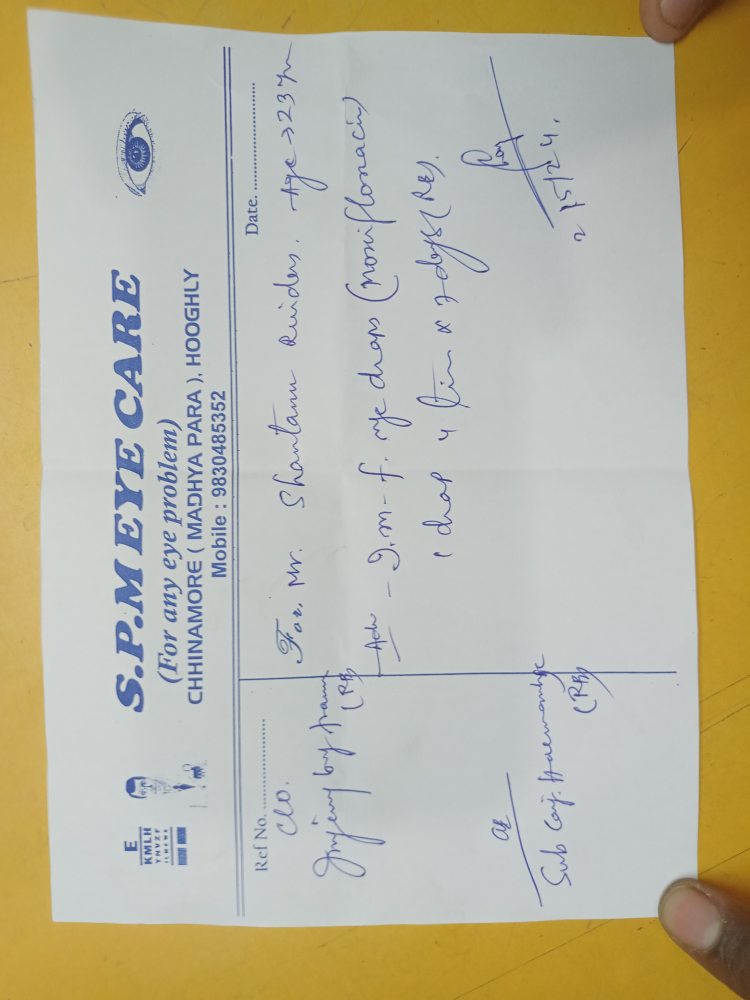 E
KMLH
S.P.M EYE CARE
(For any eye problem)
CHHINAMORE ( MADHYA PARA ), HOOGHLY
Mobile : 9830485352
Ref No. ..................
Date. ..................
C/O.
Injury by
(RE)
O/E
Sub Conj. Haemorrhge
(RE)
For, Mr. Shantanu Age → 23 yrs
Adv
- I.M-f. eye drops (Moxifloxacin)
1 drop 4 tim x 7 days (RE).
2/5/24.